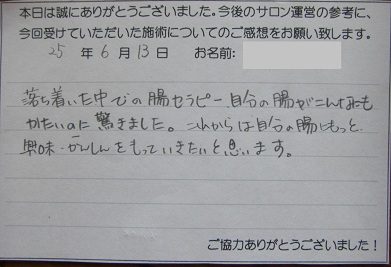 本日は誠にありがとうございました。今後のサロン運営の参考に、
今回受けていただいた施術についてのご感想をお願い致します。
25 年 6 月 13 日 お名前:
落ち着いた中での腸セラピー 自分の腸がこんなにも
かたいのに驚きました。これからは自分の腸にもっと
興味・かんしんをもっていきたいと思います。
ご協力ありがとうございました!